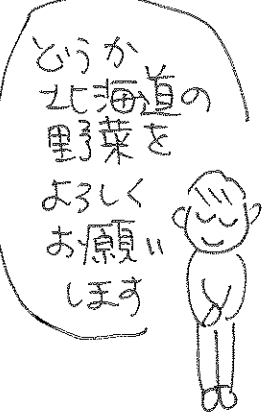 どうか
北海道の
野菜を
よろしく
お願い
します